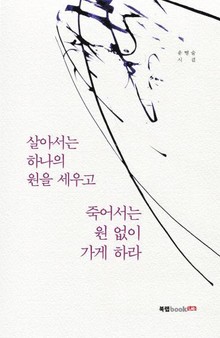 시집
살아서는
하나의
원을 세우고
죽어서는
원 없이
가게 하라
북랩book Lab